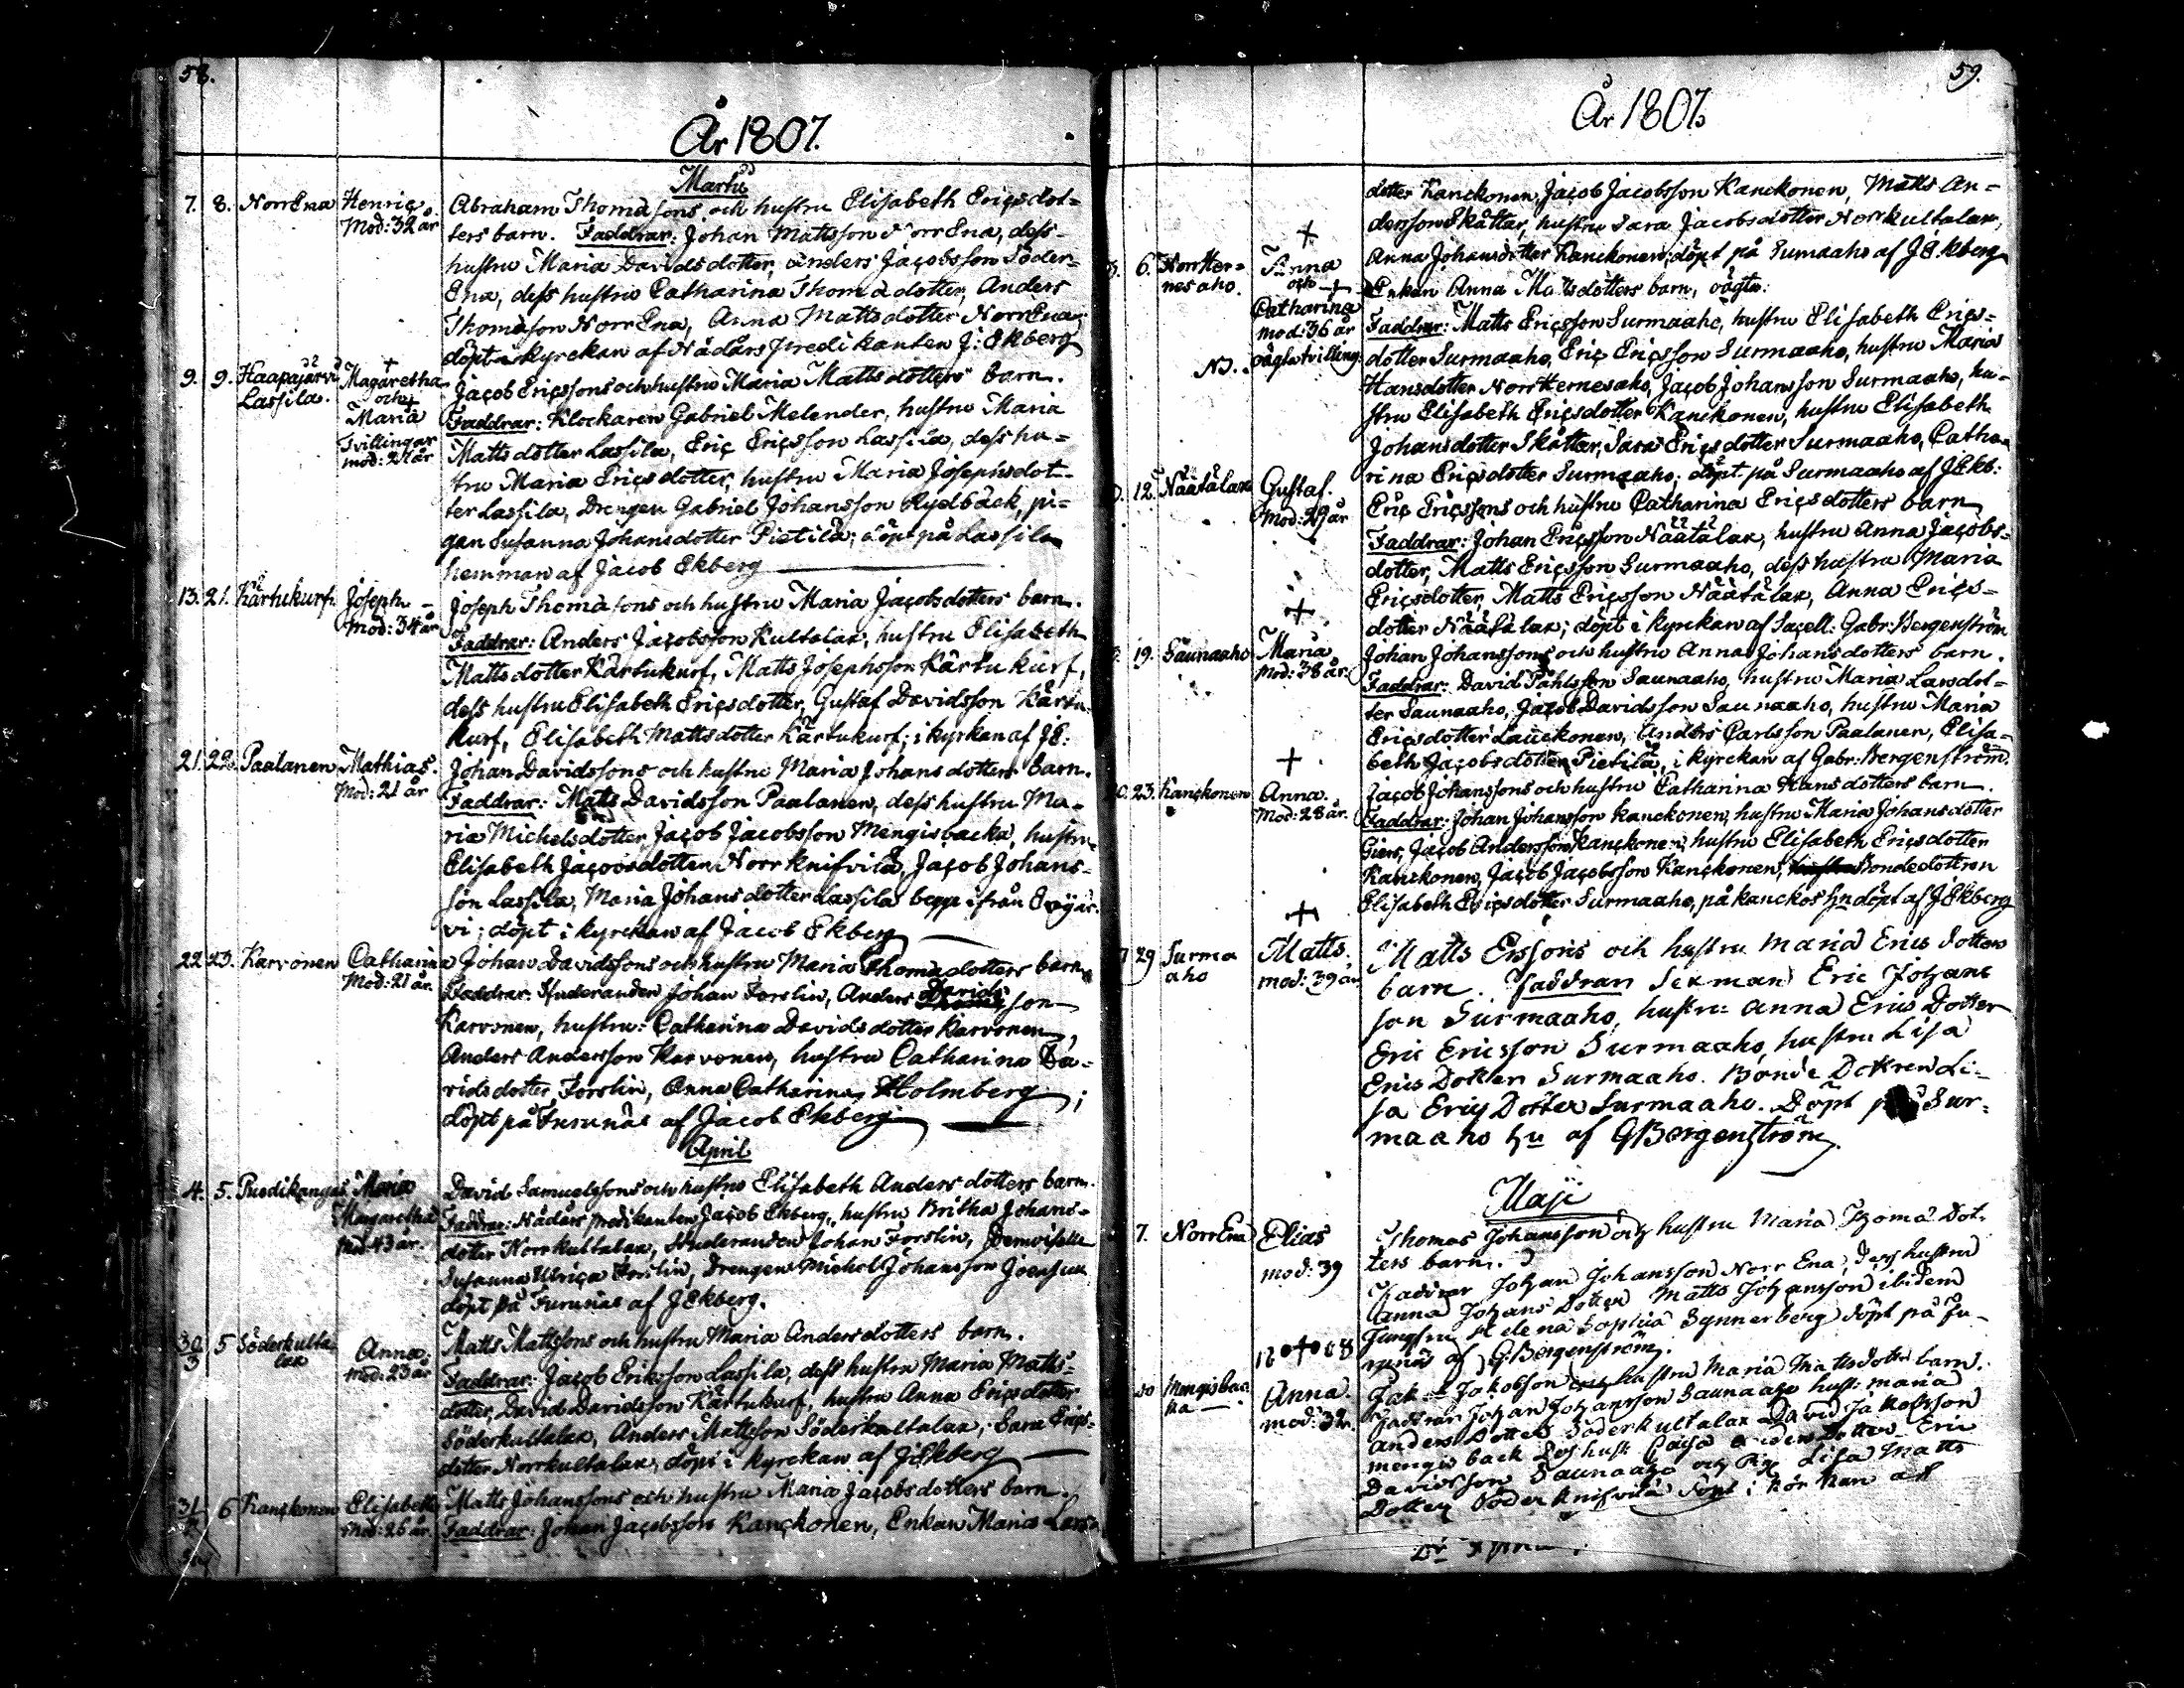 58.
År 1807.
Martii
7. 8. NorrEna Henric. Mod: 32 år
Abraham Thomæsons och hustru Elisabeth Ericsdot=
ters barn. Faddrar: Johan Mattsson NorrEna, dess
hustru Maria Davidsdotter, Anders Jacobsson Söder=
Ena, dess hustru Catharina Thomædotter, Anders
Thomæson NorrEna, Anna Mattsdotter NorrEna;
döpt i kyrckan af Nådårs predikanten J: Ekberg
9. 9. Haapajärvi Lassila. + Magaretha och + Maria Tvillingar mod: 27 år
Jacob Ericssons och hustru Maria Mattsdotters barn.
Faddrar: Klockaren Gabriel Melender, hustru Maria
Mattsdotter Lassila, Eric Ericsson Lassila, dess hu=
stru Maria Ericsdotter, hustru Maria Josephsdot=
ter Lassila, Drengen Gabriel Johansson Rydbäck, pi=
gan Susanna Johansdotter Pietilä; döpt på Lassila
hemman af Jacob Ekberg
13. 21. Kärtukurf. Joseph Mod: 34 år
Joseph Thomæsons och hustru Maria Jacobsdotters barn.
Faddrar: Anders Jacobsson Kultalax, hustru Elisabeth
Mattsdotter Kärtukurf, Matts Josephsson Kärtukurf,
dess hustru Elisabeth Ericsdotter, Gustaf Davidsson Kärtu
kurf, Elisabeth Mattsdotter Kärtukurf; i kyrkan af JE:
21. 22. Paalanen Mathias. Mod: 21 år
Johan Davidssons och hustru Maria Johansdotters barn.
Faddrar: Matts Davidsson Paalanen, dess hustru Ma=
ria Michelsdotter, Jacob Jacobsson Mengisbacka, hustru
Elisabeth Jacobsdotter Norrknifvilä, Jacob Johans=
son Lassila, Maria Johansdotter Lassila begge ifrån Evijär
vi; döpt i kyrckan af Jacob Ekberg
22 23. Karvonen Catharina Mod: 21 år.
Johan Davidssons och hustru Maria Thomædotters barn.
Faddrar: Studeranden Johan Forslin, Anders Davids son
Karvonen, hustru Catharina Davidsdotter Karvonen,
Anders Andersson Karvonen, hustru Catharina Da=
vidsdotter Forslin, Anna Catharina Holmberg;
döpt på Furunäs af Jacob Ekberg
April
4. 5. Puodikangas Maria Margaretha Mod 43 år.
David Samuelssons och hustru Elisabeth Andersdotters barn.
Faddrar: Nådårs predikanten Jacob Ekberg, hustru Britha Johans=
dotter Norrkultalax, Studeranden Johan Forslin, Demoiselle
Susanna Ulrica Forslin, Drengen Michel Johansson Joensuu
döpt på Furunäs af J Ekberg.
30/3 5 Söderkultalax Anna. mod: 23 år
Matts Mattssons och hustru Maria Andersdotters barn.
Faddrar: Jacob Ericksson Lassila, dess hustru Maria Matts=
dotter, David Davidsson Kärtukurf, hustru Anna Ericsdotter
Söderkultalax, Anders Mattsson Söderkultalax, Sara Erics=
dotter Norrkultalax, döpt i kyrckan af J Ekberg
31 6 Kanckonen Elisabeth Mod: 26 år.
Matts Johanssons och hustru Maria Jacobsdotters barn.
Faddrar: Johan Jacobsson Kanckonen, Enkan Maria Lars
59.
År 1807.
dotter Kanckonen, Jacob Jacobsson Kanckonen, Matts An=
dersson Skåttar, hustru Sara Jacobsdotter Norrkultalax,
Anna Johansdotter Kanckonen; döpt på Surmaaho af J Ekberg
6. Norr Her=nesaho. + Anna och + Catharina mod: 36 år oägta tvilling: N3.
Enkan Anna Matsdotters barn, oägta.
Faddrar: Matts Ericsson Surmaaho, hustru Elisabeth Erics=
dotter Surmaaho, Eric Ericsson Surmaaho, hustru Maria
Hansdotter NorrHernesaho, Jacob Johansson Surmaaho, hu=
stru Elisabeth Ericsdotter Kanckonen, hustru Elisabeth
Johansdotter Skåttar, Sara Ericsdotter Surmaaho, Catha
rina Ericsdotter Surmaaho; döpt på Surmaaho af J Ekb:
12. Näätälax Gustaf. Mod: 29 år
Eric Ericssons och hustru Catharina Ericsdotters barn
Faddrar: Johan Ericsson Näätälax, hustru Anna Jacobs=
dotter, Matts Ericsson Surmaaho, dess hustru Maria
Ericsdotter, Matts Ericsson Näätälax, Anna Erics=
dotter Näätälax; döpt i kyrckan af Sacell: Gabr: Bergenström
19. Saunaaho + Maria Mod: 38 år.
Johan Johanssons och hustru Anna Johansdotters barn.
Faddrar: David Påhlsson Saunaaho, hustru Maria Larsdot=
ter Saunaaho, Jacob Davidsson Saunaaho, hustru Maria
Ericsdotter Lauckonen, Anders Carlsson Paalanen, Elisa=
beth Jacobsdotter Pietilä, i kyrckan af Gabr: Bergenström
23. Kanckonen + Anna. Mod: 28 år.
Jacob Johanssons och hustru Catharina Hansdotters barn.
Faddrar: Johan Johansson Kanckonen, hustru Maria Johansdotter
Giers, Jacob Andersson Kanckonen, hustru Elisabeth Ericsdotter
Kanckonen, Jacob Jacobsson Kanckonen, Bondedottren
Elisabeth Ericsdotter Surmaaho, på Kanckos hn döpt af J Ekberg
29 Surmaaho + Matts. mod: 39 år
Matts Erssons och hustru Maria Erics dotters
barn. Faddrar Sexman Eric Johans
son Surmaaho, hustru Anna Erics Dotter
Eric Ericsson Surmaaho, hustru Lisa
Erics Dotter Surmaaho. Bonde Dottren Li=
sa Erics Dotter Surmaaho. Döpt på Sur=
maaho hn af G Bergenström
Maji
7. NorrEna Elias mod: 39
Thomas Johansson och hustru Maria Thomæ Dot
ters barn.
Faddrar Johan Johansson Norr Ena, dess hustru
Anna Johans Dotter Matts Johansson ibidem
Jungfru Helena Sophia Synnerberg döpt på Fu-
runäs af G Bergenström.
10 Mengisbacka Anna. mod: 32.
Jak. Jakobson och hustru Maria Mattsdotter barn.
Faddrar Johan Johansson Saunaaho hust: maria
Anders Dotter Söderkultalax David Jakobsson
mengisback des hust: Caisa Anders Dotter Eric
Davidsson Saunaaho och Pig: Lisa Matts
Dotter Söderknifvilä döpt i körkan af